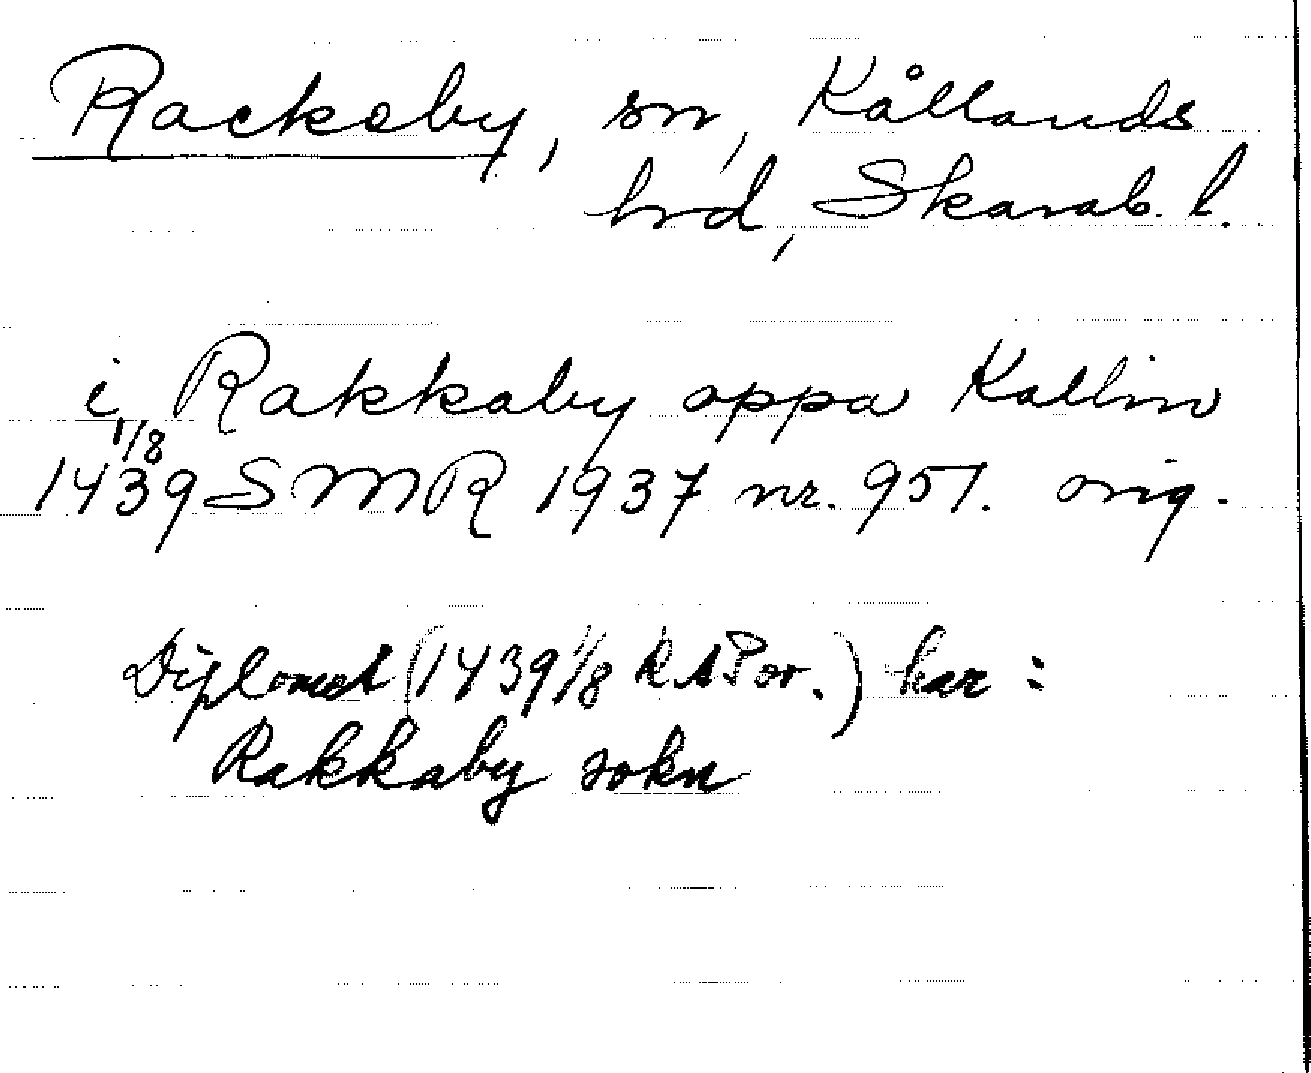 Rackeby, sn, Kållands
hrd, Skarab. l.
i Rakkaby oppa Kallin
1/8
1439 SMR 1937 nr. 957. orig.
Diplomet (1439 1/8 RAP or.) har:
Rakkaby sokn